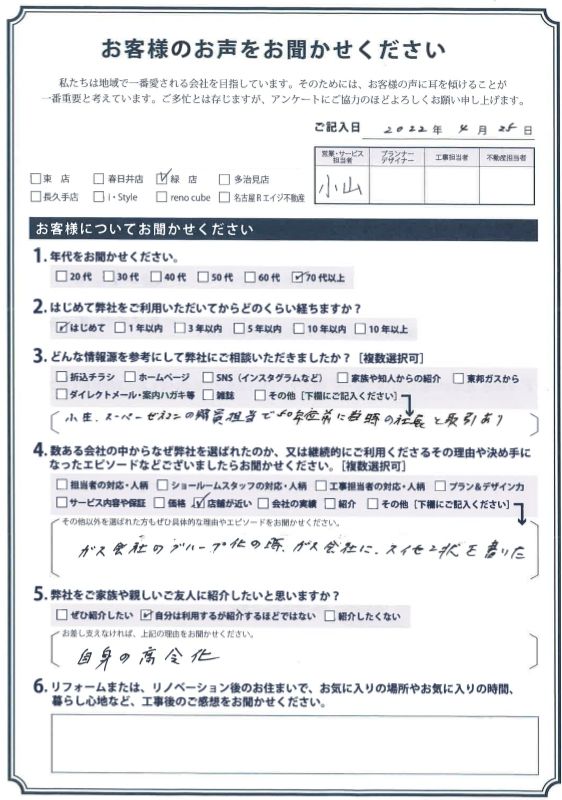 お客様のお声をお聞かせください
私たちは地域で一番愛される会社を目指しています。そのためには、お客様の声に耳を傾けることが
一番重要と考えています。ご多忙とは存じますが、アンケートにご協力のほどよろしくお願い申し上げます。
ご記入日 2022年 4月 25日
営業・サービス担当者 プランナーデザイナー 工事担当者 不動産担当者
小山
□東 店 □春日井店 ☑緑 店 □多治見店
□長久手店 □i・Style □reno cube □名古屋Rエイジ不動産
お客様についてお聞かせください
1. 年代をお聞かせください。
□20代 □30代 □40代 □50代 □60代 ☑70代以上
2. はじめて弊社をご利用いただいてからどのくらい経ちますか?
☑はじめて □1年以内 □3年以内 □5年以内 □10年以内 □10年以上
3. どんな情報源を参考にして弊社にご相談いただきましたか?[複数選択可]
□折込チラシ □ホームページ □SNS(インスタグラムなど) □家族や知人からの紹介 □東邦ガスから
□ダイレクトメール・案内ハガキ等 □雑誌 □その他[下欄にご記入ください]
小生、スーパーゼネコンの購買担当で50年程前に当時の社長と取引あり
4. 数ある会社の中からなぜ弊社を選ばれたのか、又は継続的にご利用くださるその理由や決め手に
なったエピソードなどございましたらお聞かせください。[複数選択可]
□担当者の対応・人柄 □ショールームスタッフの対応・人柄 □工事担当者の対応・人柄 □プラン&デザイン力
□サービス内容や保証 □価格 ☑店舗が近い □会社の実績 □紹介 □その他[下欄にご記入ください]
その他以外を選ばれた方もぜひ具体的な理由やエピソードをお聞かせください。
ガス会社のグループ化の時、ガス会社に、スイセン状を書いた
5. 弊社をご家族や親しいご友人に紹介したいと思いますか?
□ぜひ紹介したい ☑自分は利用するが紹介するほどではない □紹介したくない
お差し支えなければ、上記の理由をお聞かせください。
自身の高令化
6. リフォームまたは、リノベーション後のお住まいで、お気に入りの場所やお気に入りの時間、
暮らし心地など、工事後のご感想をお聞かせください。